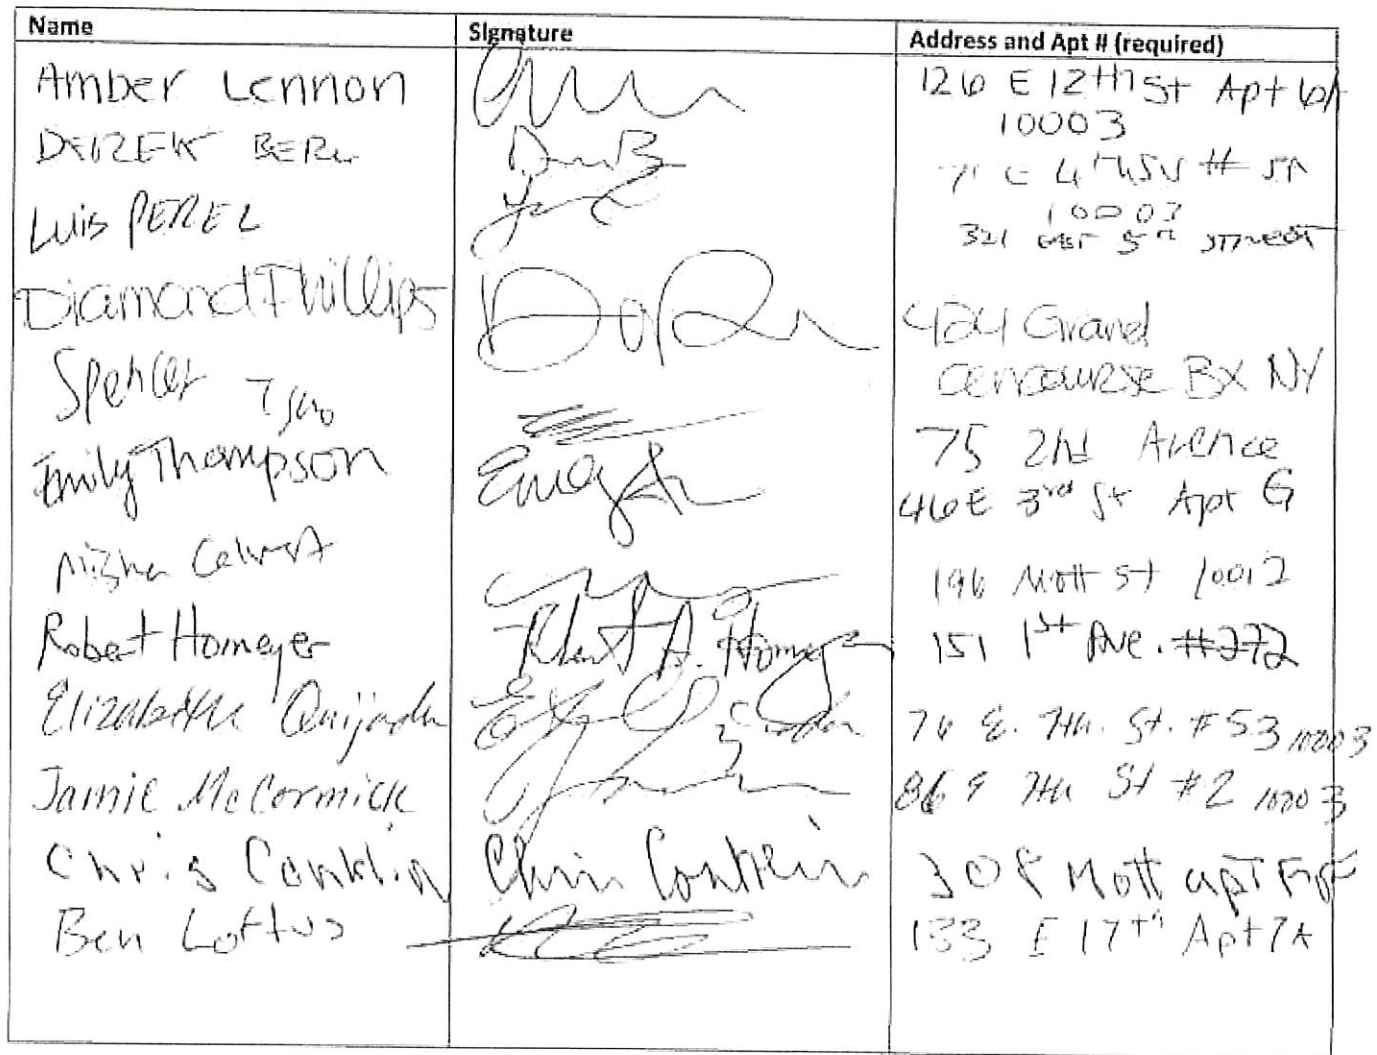 Name Signature Address and Apt # (required)
Amber Lennon 126 E 12th St Apt 6A
10003
DEREK BERL 71 E 4th St # 5A
10003
Luis PEREZ 321 EAST 5TH STREET
Diamond Phillips 424 Grand
Concourse BX NY
Spencer 75 2nd Avenue
Emily Thompson 46 E 3rd St Apt G
Misha Calvert 196 Mott St 10012
Robert Homeyer Robert A. Homeyer 151 1st Ave. #272
Elizabeth Quijada 76 E. 7th. St. #53 10003
Jamie McCormick 86 E 7th St #2 10003
Chris Conklin Chris Conklin 308 Mott apt
Ben Loftus 133 E 17th Apt 7A